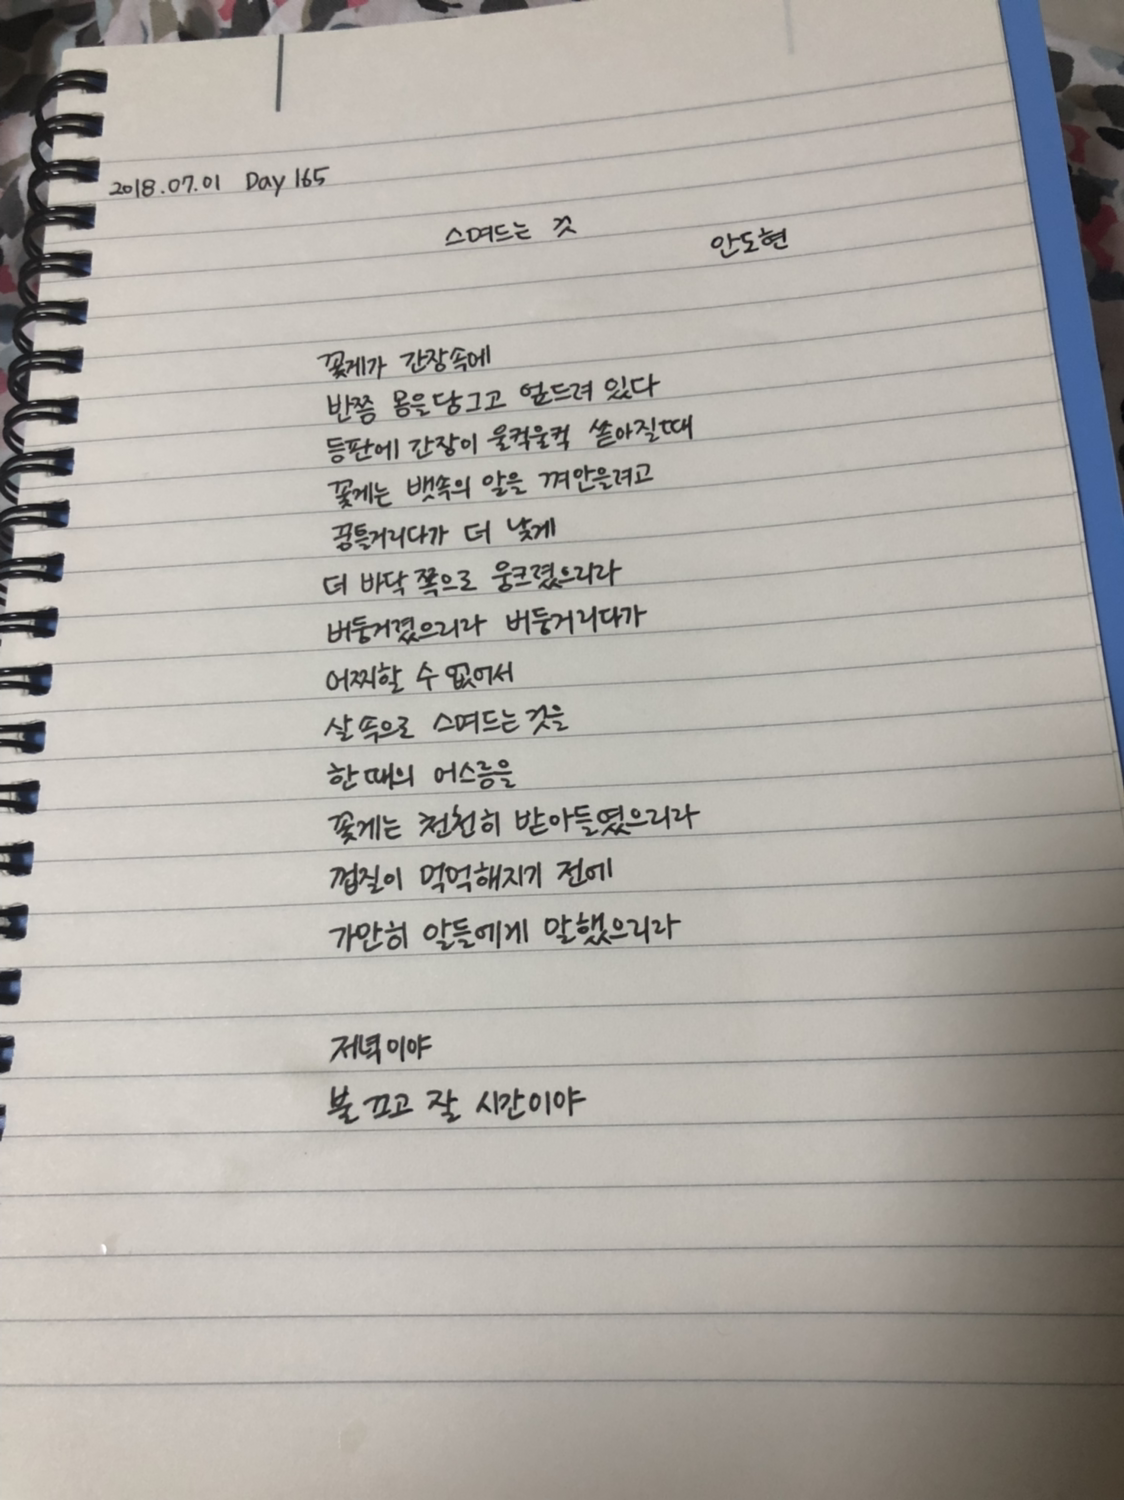 2018.07.01 Day 165
스며드는 것
안도현
꽃게가 간장속에
반쯤 몸을 당그고 엎드려 있다
등판에 간장이 울컥울컥 쏟아질때
꽃게는 뱃속의 알을 껴안을려고
꿈틀거리다가 더 낮게
더 바닥 쪽으로 웅크렸으리라
버둥거렸으리라 버둥거리다가
어찌할 수 없어서
살 속으로 스며드는 것을
한 때의 어스름을
꽃게는 천천히 받아들였으리라
껍질이 먹먹해지기 전에
가만히 알들에게 말했으리라
저녁이야
불 끄고 잘 시간이야